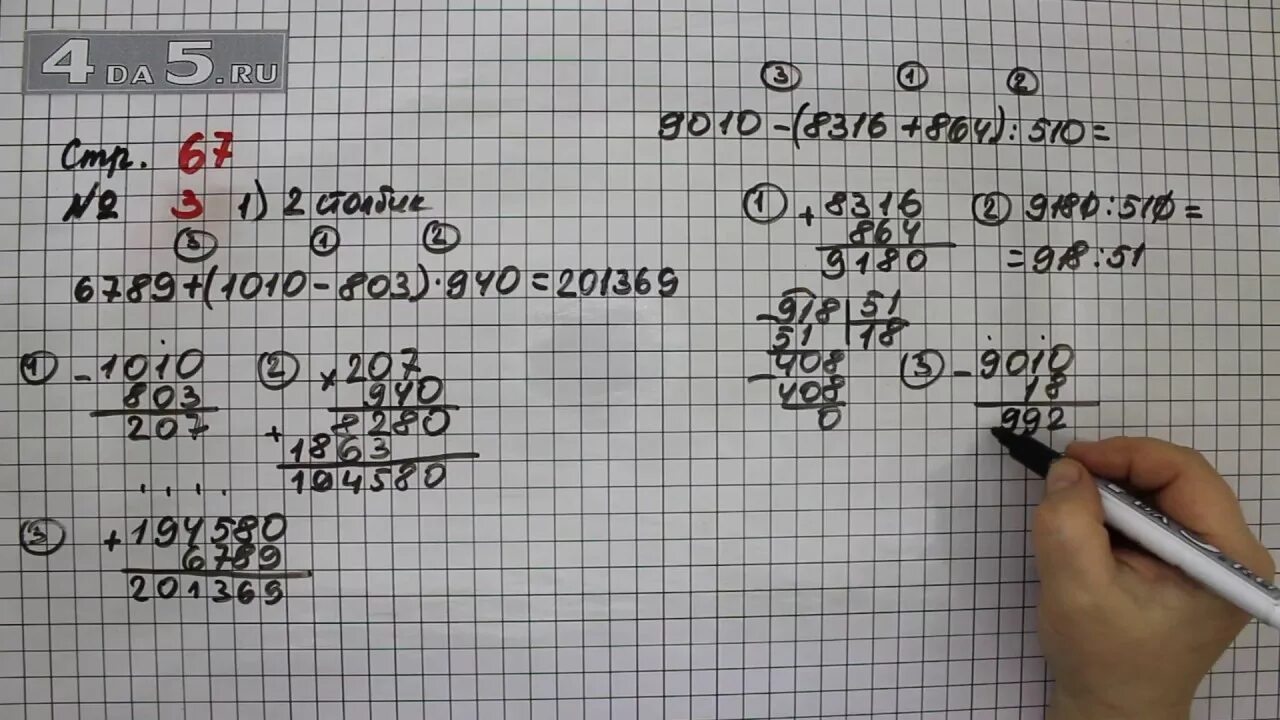 4 DA 5.RU
Стр. 67
№2 3 1) 2 столбик
③ ① ②
6789+(1010-803)·940=201369
① -1010
803
207
② ×207
940
8280
+1863
194580
③ +194580
6789
201369
③ ① ②
9010-(8316+864):510=
① +8316
864
9180
② 9180:510=
=918:51
-918 51
51 18
-408
408
0
③ -9010
18
992